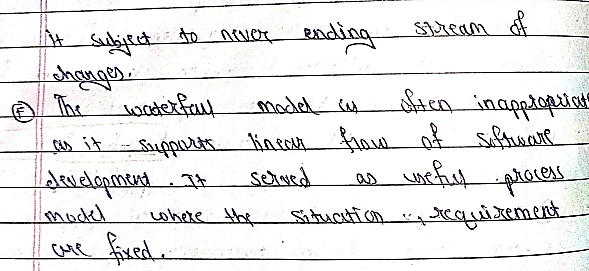 it subject to never ending stream of
changes.
Ⓕ The waterfall model is often inappropriat
as it supports linear flow of software
development. It served as useful process
model where the situation ∵, requirement
are fixed.